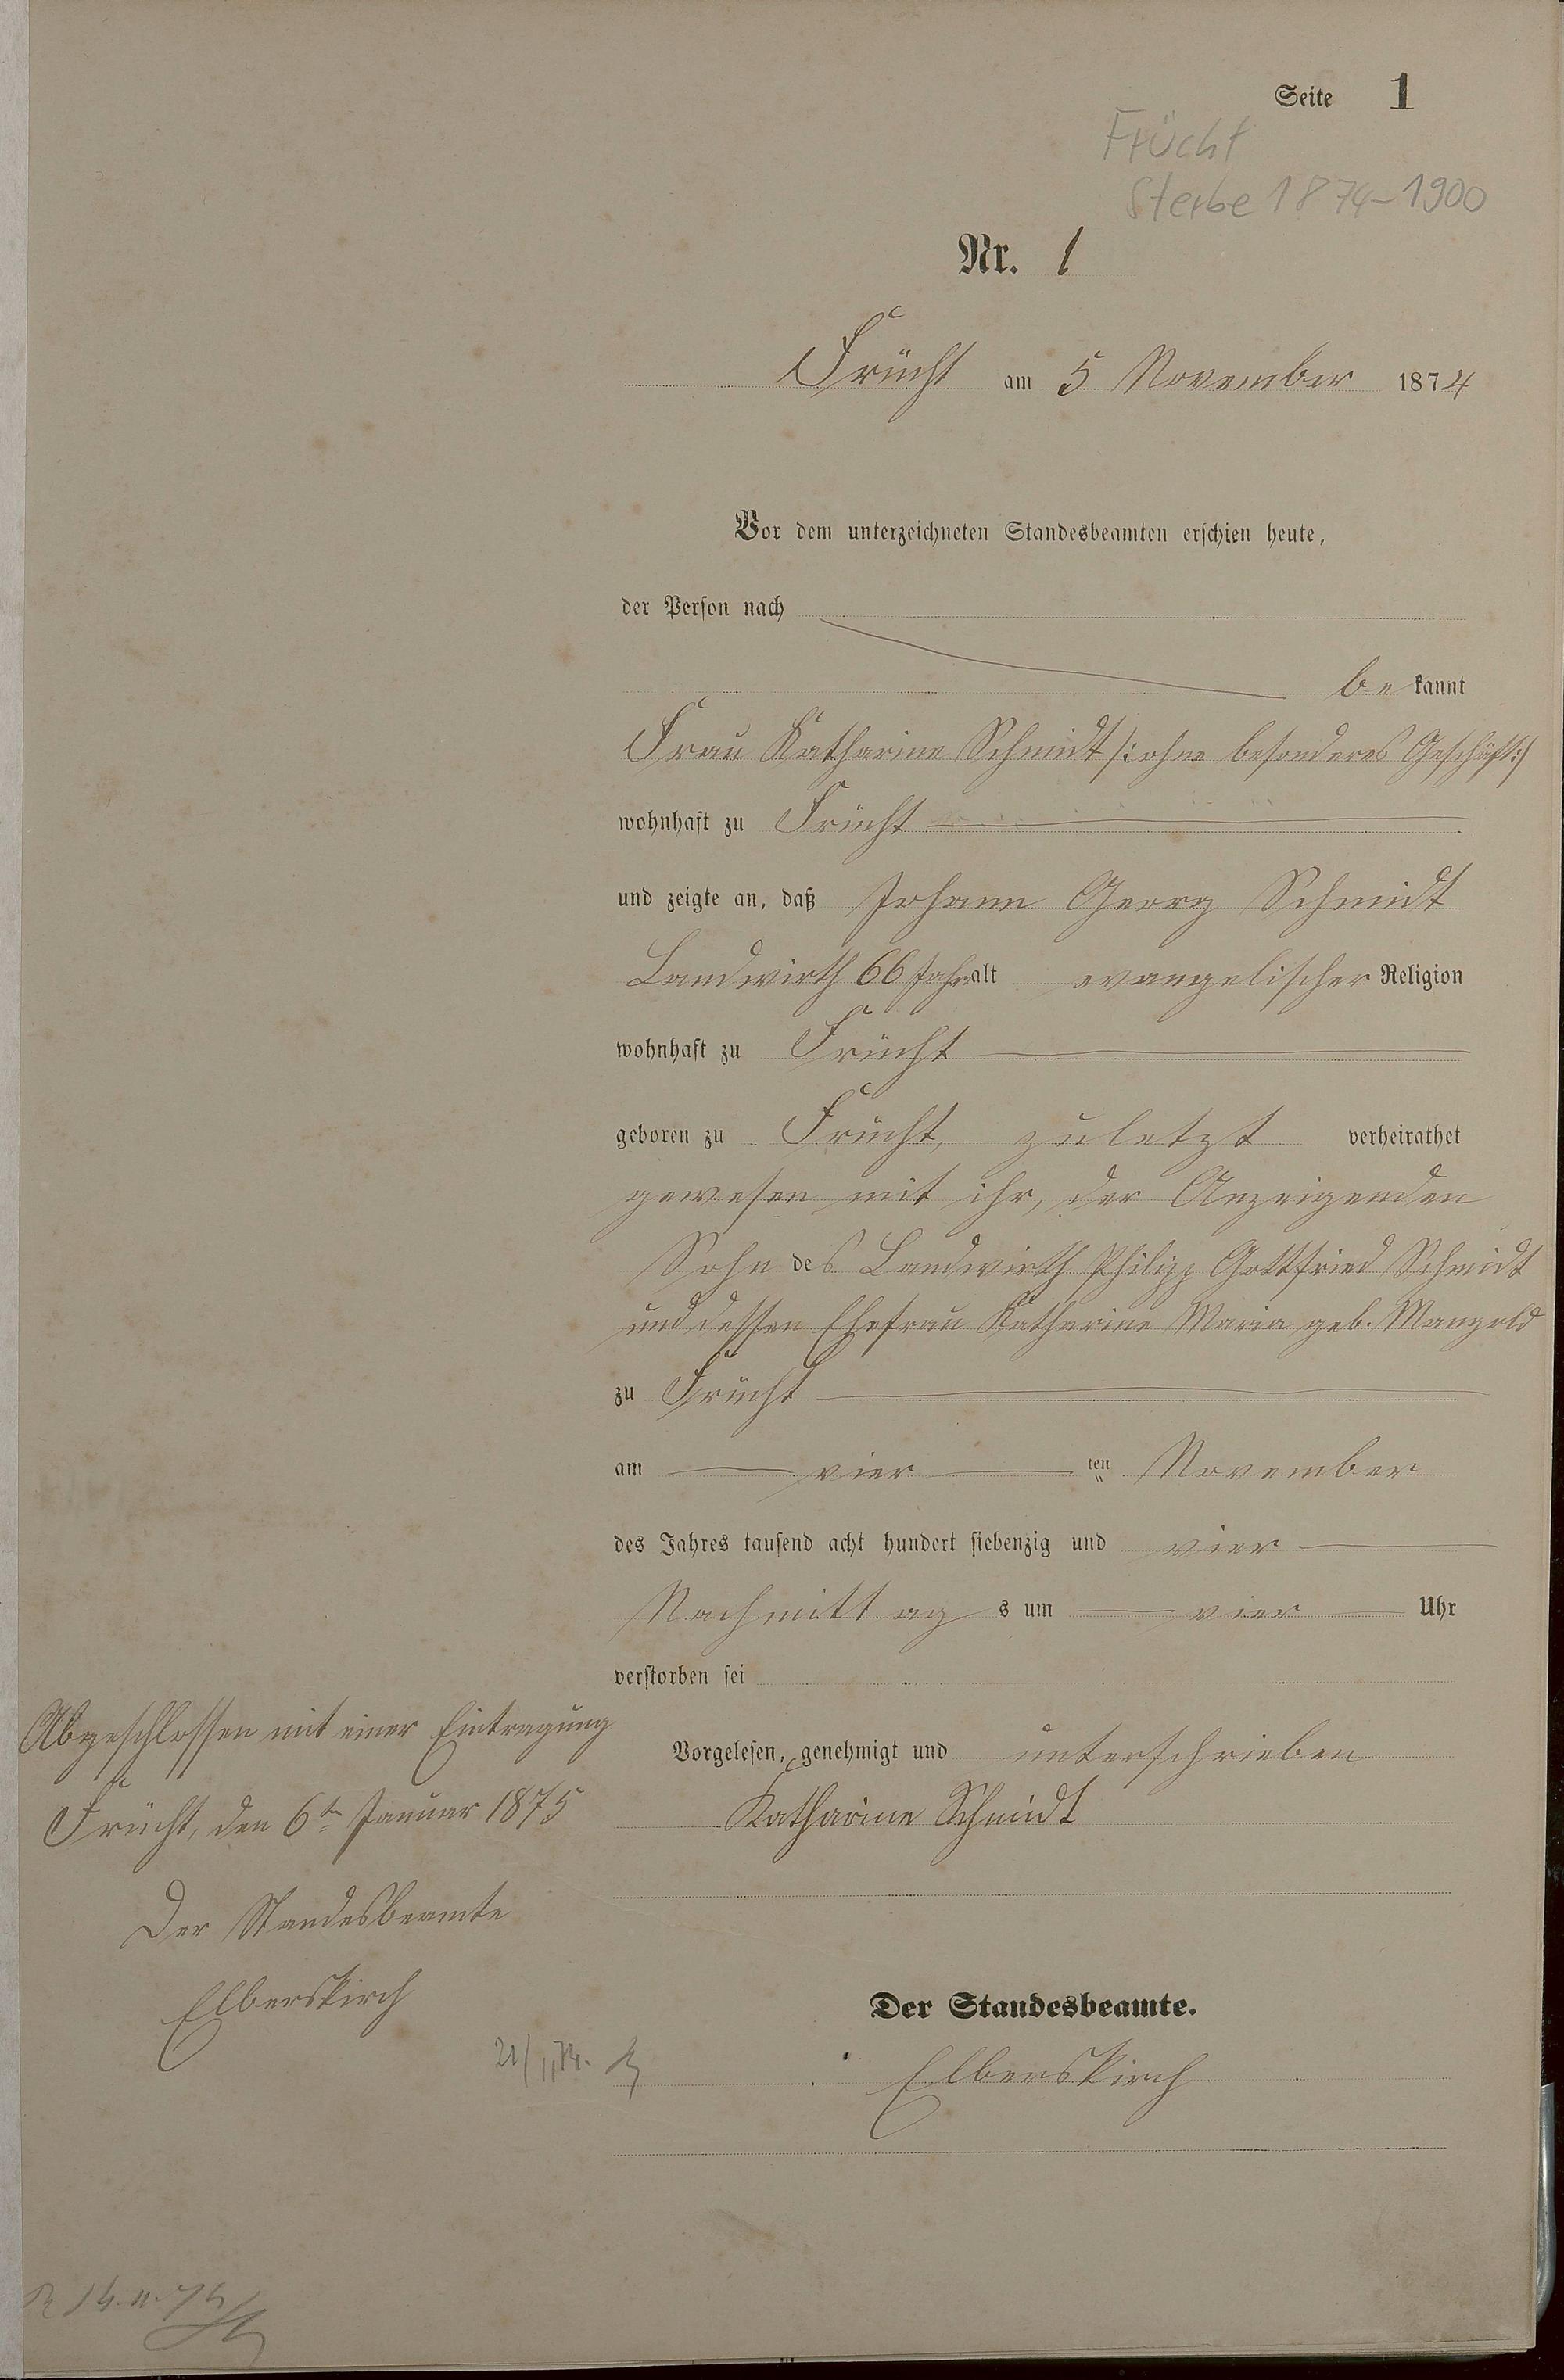 Seite 1
Frücht
Sterbe 1874-1900
Nr. 1
Frücht am 5 November 1874
Vor dem unterzeichneten Standesbeamten erschien heute,
der Person nach
bekannt
Frau Katharine Schmidt /: ohne besonderes Geschäft :/
wohnhaft zu Frücht
und zeigte an, daß Johann Georg Schmidt
Landwirth 66 Jahr alt evangelischer Religion
wohnhaft zu Frücht
geboren zu Frücht, zuletzt verheirathet
gewesen mit ihr, der Anzeigenden
Sohn des Landwirth Philipp Gottfried Schmidt
und dessen Ehefrau Katharine Maria geb. Mangold
zu Frücht
am vier ten November
des Jahres tausend acht hundert siebenzig und vier
Nachmittags um vier Uhr
verstorben sei
Vorgelesen, genehmigt und unterschrieben
Katharine Schmidt
Der Standesbeamte.
Elberskirch
Abgeschlossen mit einer Eintragung
Frücht, den 6ten Januar 1875
Der Standesbeamte
Elberskirch
21/11 74.
14.11.74